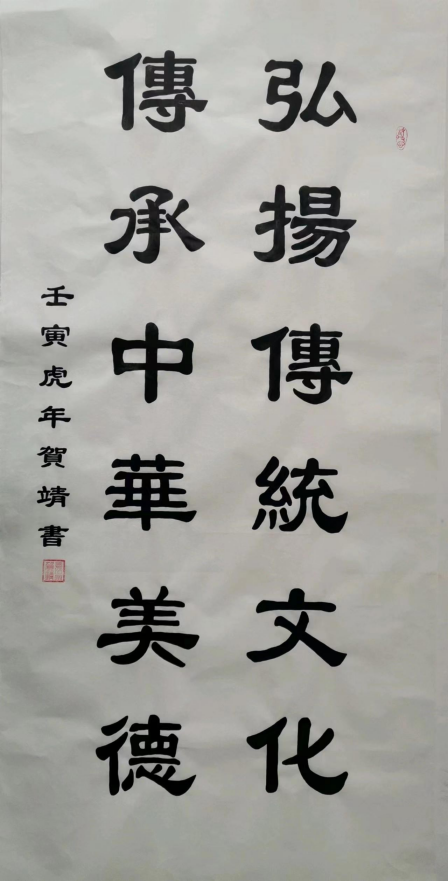 弘揚傳統文化
傳承中華美德
壬寅虎年賀靖書